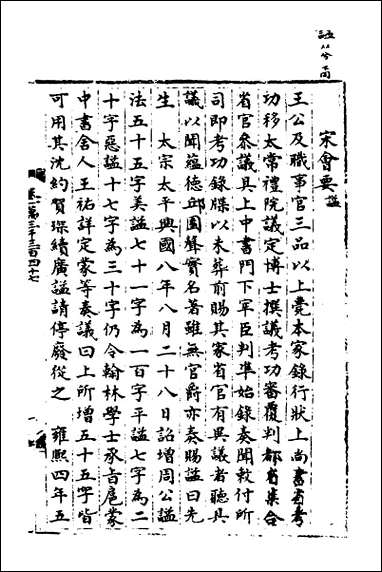 宋會要 謚
王公及職事官三品以上薨本家錄行狀上尚書省考
功移太常禮院議定博士撰議考功審覆判都省集合
省官參議具上中書門下宰臣判準始錄奏聞敕付所
司即考功錄牒以未葬前賜其家省官有異議者聽具
議以聞蘊德丘園聲實名著雖無官爵亦奏賜謚曰先
生 太宗太平興國八年八月二十八日詔增周公謚
法五十五字美謚七十一字為一百字平謚七字為二
十字惡謚十七字為三十字仍令翰林學士承旨扈蒙
中書舍人王祐詳定蒙等奏議曰上所增五十五字皆
可用其沈約賀琛續廣謚請停廢從之 雍熙四年五